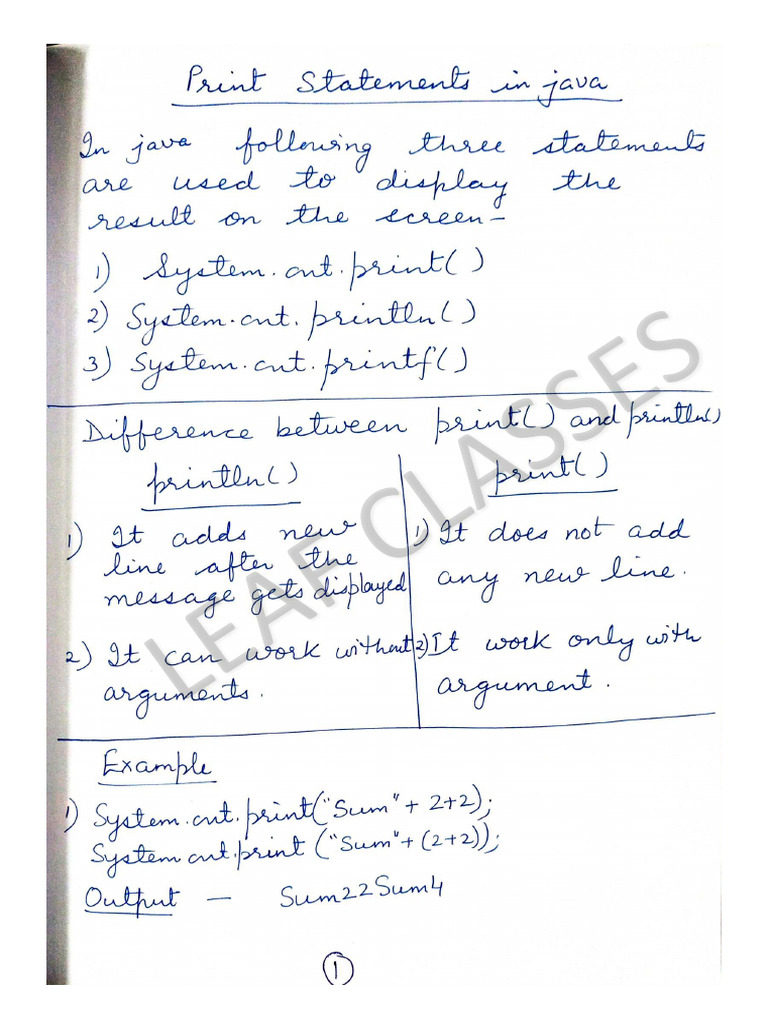 Print Statements in java
In java following three statements
are used to display the
result on the screen-
1) System.out.print()
2) System.out.println()
3) System.out.printf()
Difference between print() and println()
println()
1) It adds new
line after the
message gets displayed
2) It can work without
arguments.
print()
1) It does not add
any new line.
2) It work only with
argument.
Example
1) System.out.print("Sum"+ 2+2);
System out.print ("Sum"+ (2+2));
Output - Sum22Sum4
1
LEAF CLASSES